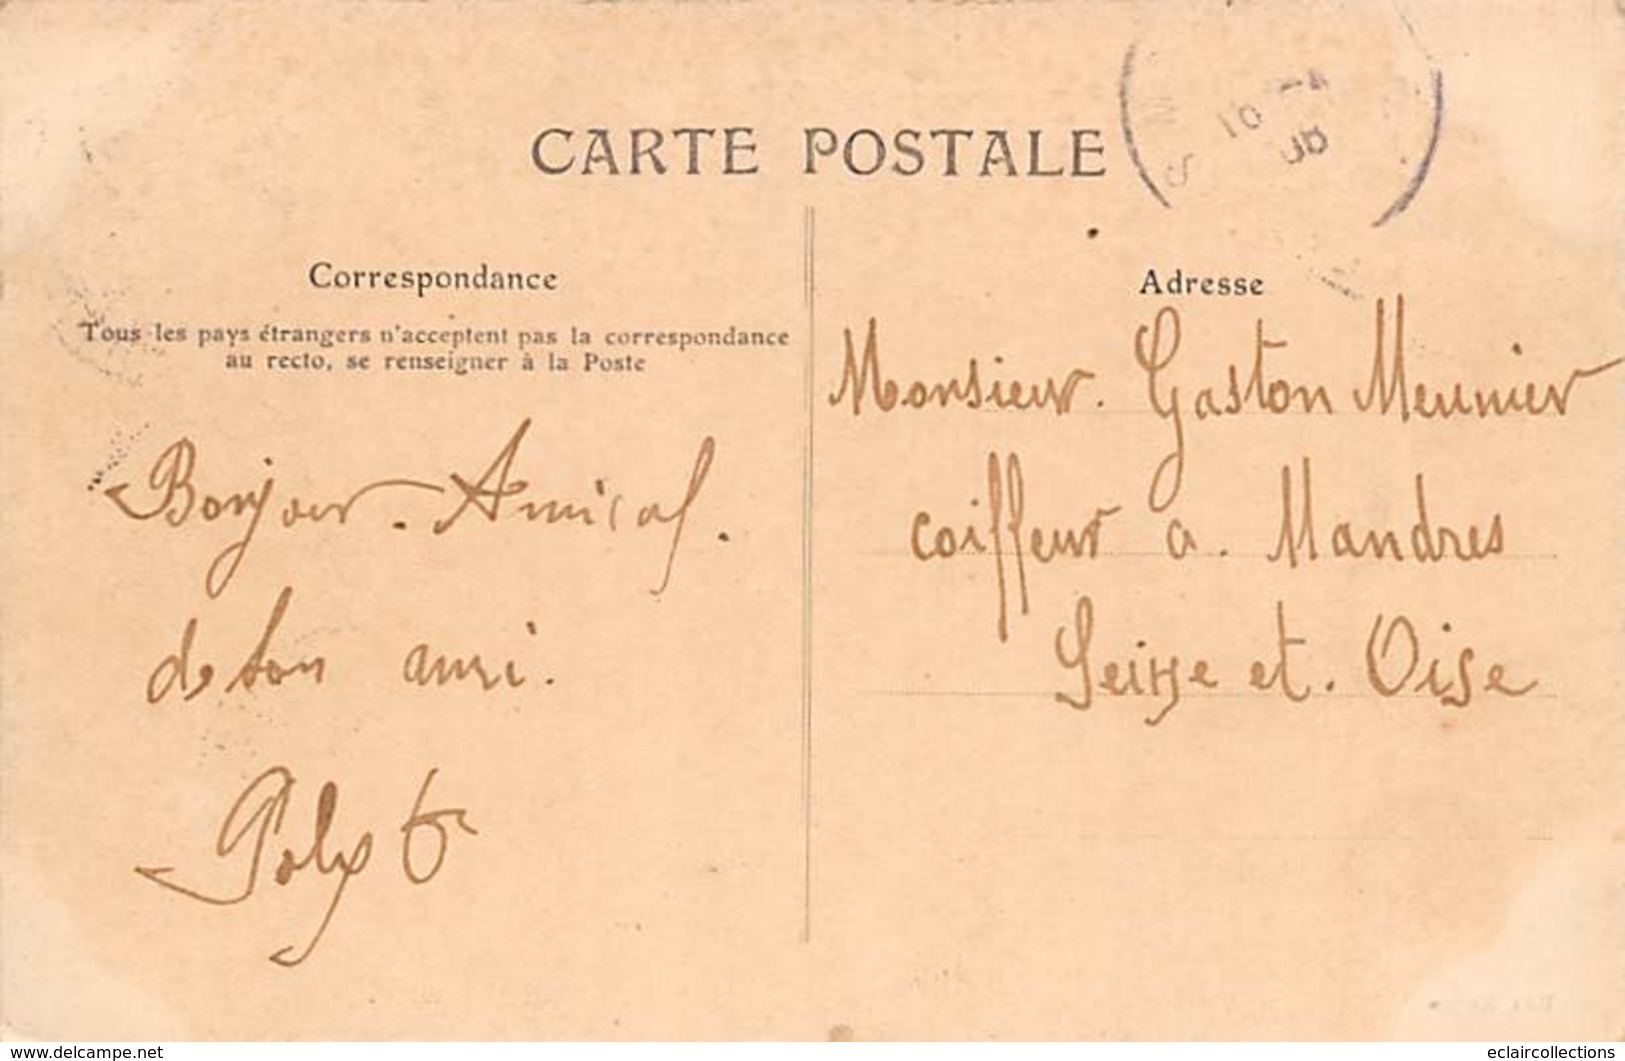 CARTE POSTALE
Correspondance
Tous les pays étrangers n'acceptent pas la correspondance
au recto, se renseigner à la Poste
Bonjour. Amical.
de ton ami.
Adresse
Monsieur. Gaston Meunier
coiffeur a. Mandres
Seine et. Oise
www.delcampe.net
eclaircollections